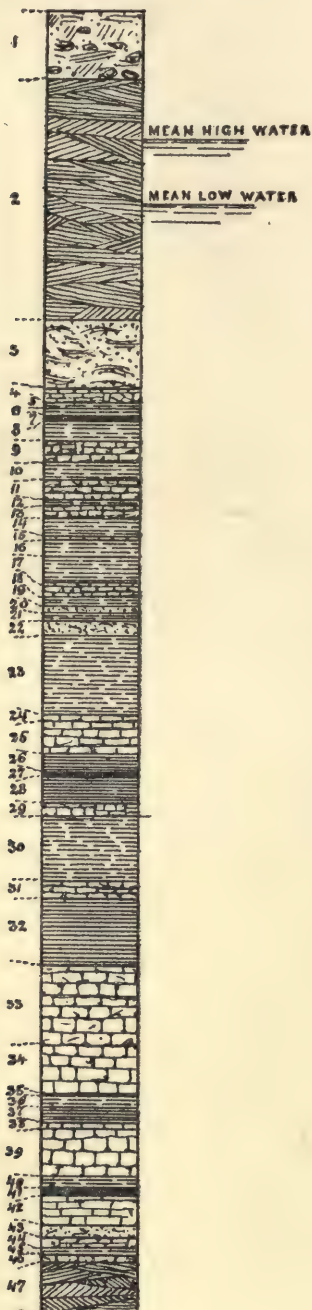 1
MEAN HIGH WATER
MEAN LOW WATER
2
3
4
5
6
7
8
9
10
11
12
13
14
15
16
17
18
19
20
21
22
23
24
25
26
27
28
29
30
31
32
33
34
35
36
37
38
39
40
41
42
43
44
45
46
47